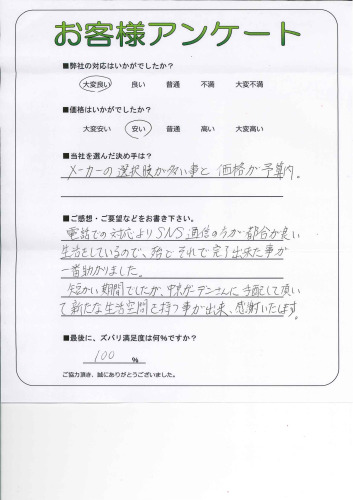 お客様アンケート
■弊社の対応はいかがでしたか?
大変良い 良い 普通 不満 大変不満
■価格はいかがでしたか?
大変安い 安い 普通 高い 大変高い
■当社を選んだ決め手は?
メーカーの選択肢が多い事と価格が予算内。
■ご感想・ご要望などをお書き下さい。
電話での対応よりSNS通信のうが都合が良い
生活としているので、殆どそれで完了出来た事が
一番助かりました。
短かい期間でしたが、ガーデンさんに手配して頂い
て新たな生活空間を持つ事が出来、感謝いたします。
■最後に、ズバリ満足度は何%ですか?
100 %
ご協力頂き、誠にありがとうございました。